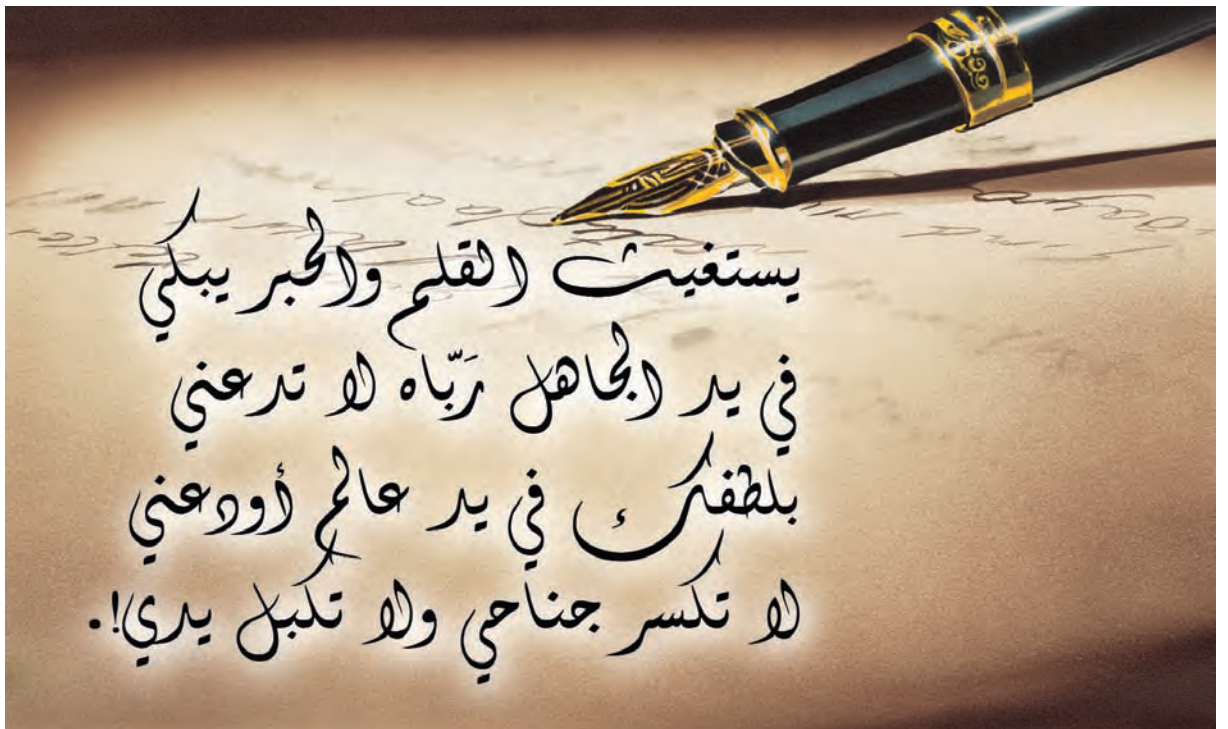 يستغيث القلم والحبر يبكي
في يد الجاهل رَبّاه لا تدعني
بلطفك في يد عالم أودعني
لا تكسر جناحي ولا تكبل يدي!.